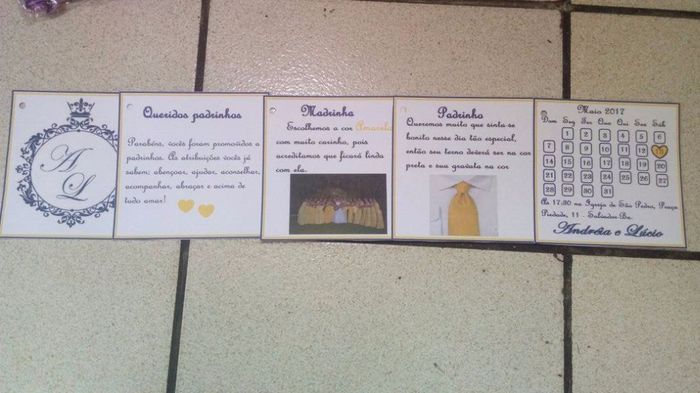 A
L
Queridos padrinhos
Parabéns, vocês foram promovidos a
padrinhos. As atribuições vocês já
sabem: abençoar, ajudar, aconselhar,
acompanhar, abraçar e acima de
tudo amar!
Madrinha
Escolhemos a cor Amarela
com muito carinho, pois
acreditamos que ficará linda
com ela.
Padrinho
Queremos muito que sinta-se
bonito nesse dia tão especial,
então seu terno deverá ser na cor
preta e sua gravata na cor
Maio 2017
Dom Seg Ter Qua Qui Sex Sáb
1 2 3 4 5 6
7 8 9 10 11 12 13
14 15 16 17 18 19 20
21 22 23 24 25 26 27
28 29 30 31
Às 17:30 na Igreja de São Pedro, Praça
Piedade, 11 - Salvador-Ba.
Andréia e Lúcio